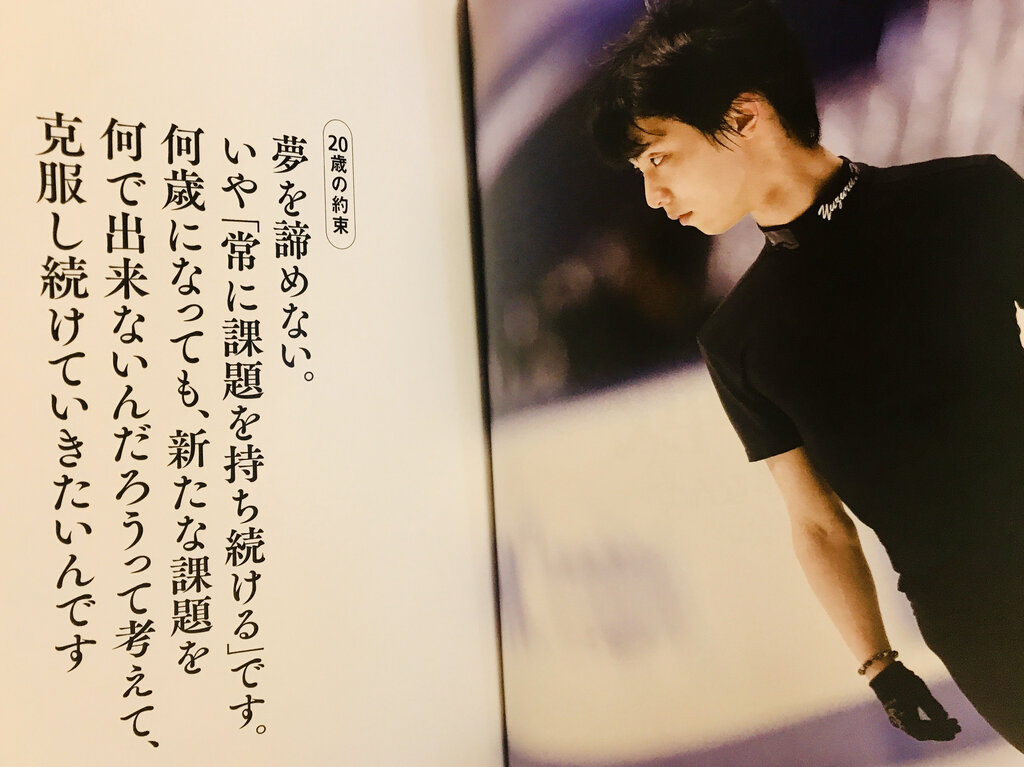 20歳の約束
夢を諦めない。
いや「常に課題を持ち続ける」です。
何歳になっても、新たな課題を
何で出来ないんだろうって考えて、
克服し続けていきたいんです